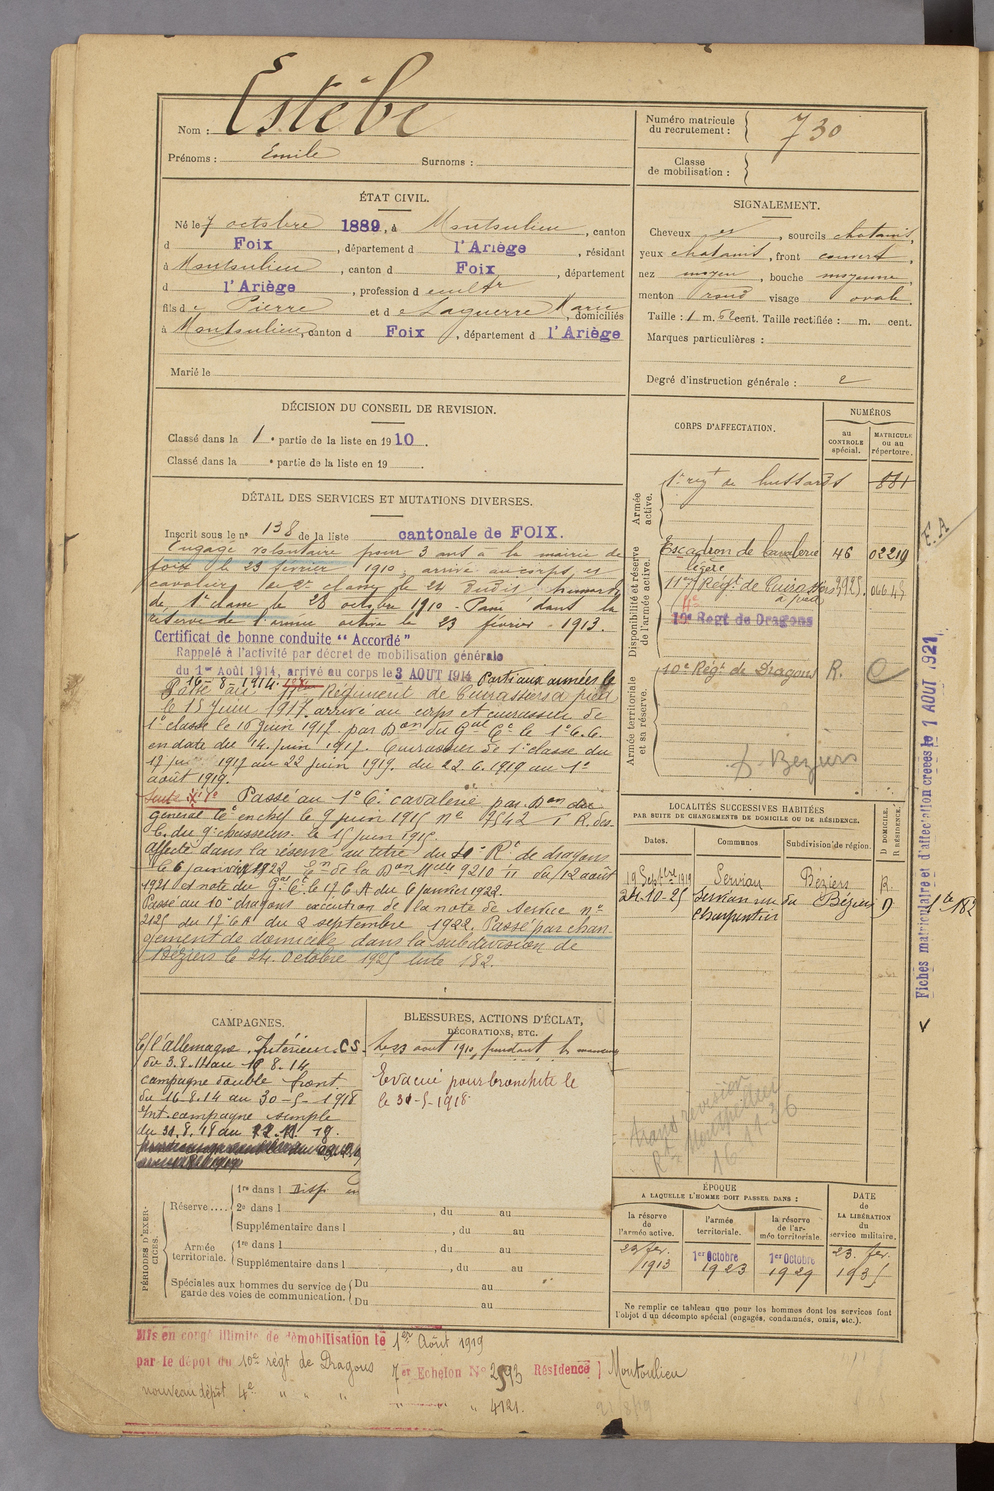 Nom : Estèbe
Prénoms : Emile Surnoms :
Numéro matricule du recrutement : 730
Classe de mobilisation :
ÉTAT CIVIL.
Né le 7 octobre 1889, à Montoulieu, canton
d Foix, département d l'Ariège, résidant
à Montoulieu, canton d Foix, département
d l'Ariège, profession d cultr
fils de Pierre et de Laguerre Marie, domiciliés
à Montoulieu, canton d Foix, département d l'Ariège
Marié le
SIGNALEMENT.
Cheveux et, sourcils chatains,
yeux chatains, front couvert,
nez moyen, bouche moyenne,
menton rond visage ovale.
Taille : 1 m. 62 cent. Taille rectifiée : m. cent.
Marques particulières :
Degré d'instruction générale : 2
DÉCISION DU CONSEIL DE REVISION.
Classé dans la 1e partie de la liste en 1910.
Classé dans la e partie de la liste en 19
DÉTAIL DES SERVICES ET MUTATIONS DIVERSES.
Inscrit sous le n° 138 de la liste cantonale de FOIX.
Engagé volontaire pour 3 ans à la mairie de
Foix le 23 février 1910, arrivé au corps et
cavalier de 2e classe le 24 dudit,
de 1e classe le 28 octobre 1910 - Passé dans la
réserve de l'armée active le 23 février 1913.
Certificat de bonne conduite "Accordé"
Rappelé à l'activité par décret de mobilisation générale
du 1er Août 1914, arrivé au corps le 3 AOUT 1914 Parti aux armées le
16-8-1914. Passé au Régiment de Cuirassiers à pied
le 15 Juin 1917 arrivé au corps et cuirassier de
1e classe le 10 Juin 1917 par Don du Gal Ct le 1e C.C.
en date du 14 Juin 1917. Cuirassier de 1e classe du
17 1917 au 22 Juin 1919. du 22.6.1919 au 1e
août 1919.
Passé au 1e C. cavalerie par Don du
général Ct en chef le 9 juin 1915 n° 7542 des
C. du 9e chasseurs le 15 juin 1915.
Affecté dans la réserve au titre du 10e Rt de dragons
le 6 janvier 1922 de la Don Mlle 9210 11 du 12 août
1921 et note du Gal Ct le 17 C A du 6 janvier 1922.
Passé au 10e dragons exécution de la note de service n°
2125 du 17e C A du 2 septembre 1922. Passé par chan
gement de domicile dans la subdivision de
Béziers le 24 Octobre 1925 liste 182.
CORPS D'AFFECTATION.
NUMÉROS
au CONTROLE spécial.
MATRICULE ou au répertoire.
Armée active.
1er regt de hussards 881
Disponibilité et réserve de l'armée active.
Escadron de Cavalerie légère 46 02219
11e Régt de Cuirassiers à pied 3925. 06645
4e
10e Régt de Dragons
Armée territoriale et sa réserve.
10e Régt de Dragons R. C
Béziers
E.A
Fiches matriculaire et d'affectation créées le 1 AOUT 1921
LOCALITÉS SUCCESSIVES HABITÉES
PAR SUITE DE CHANGEMENTS DE DOMICILE OU DE RÉSIDENCE.
Dates. Communes. Subdivision de région. D DOMICILE. R RÉSIDENCE.
19 Septbre 1919 Servian Béziers R.
24-10-25 Servian rue du Charpentier Béziers D
182
trans révision
Rt Montpellier
16 11 36
CAMPAGNES.
C/ l'Allemagne. Intérieur. C S.
du 3.8.14 au 8.14
campagne double front
du 16.8.14 au 30-5-1918
Int. campagne simple
du 31.8.18 au 19.
BLESSURES, ACTIONS D'ÉCLAT,
DÉCORATIONS, ETC.
Le 23 août 1910, pendant
Evacué pour bronchite le
le 30-5-1918
PÉRIODES D'EXERCICES.
Réserve....
1re dans l
2e dans l , du au
Supplémentaire dans l , du au
Armée territoriale.
1re dans l , du au
Supplémentaire dans l , du au
Spéciales aux hommes du service de garde des voies de communication.
Du au
Du au
ÉPOQUE
A LAQUELLE L'HOMME DOIT PASSER DANS :
la réserve de l'armée active. l'armée territoriale. la réserve de l'armée territoriale.
DATE de LA LIBÉRATION du service militaire.
23 fév. 1913 1er Octobre 1923 1er Octobre 1929 23 fév. 1935
Ne remplir ce tableau que pour les hommes dont les services font
l'objet d'un décompte spécial (engagés, condamnés, omis, etc.).
Mis en congé illimité de démobilisation le 1er Août 1919
par le dépôt du 10e régt de Dragons 7er Echelon No 2593 Résidence Montoulieu
nouveau dépôt 4e " " " " 4121.